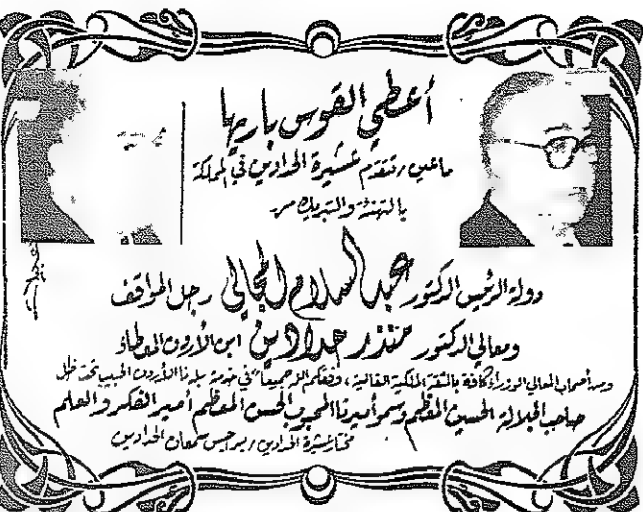 أعطي القوس باريها
ماعين، تتقدم عشيرة الحدادين في المملكة
بالتهنئة والتبريك من
دولة الرئيس الدكتور عبد السلام المجالي رجل المواقف
ومعالي الدكتور منذر حدادين ابن الأردن المعطاء
ومن أصحاب المعالي الوزراء كافة بالثقة الملكية الغالية، وفقكم الله جميعاً في خدمة بلدنا الأردن الحبيب تحت ظل
صاحب الجلالة الحسين المعظم وسمو أميرنا المحبوب الحسن المعظم أمير الفكر والعلم
مختار عشيرة الحدادين / برجس سمعان الحدادين